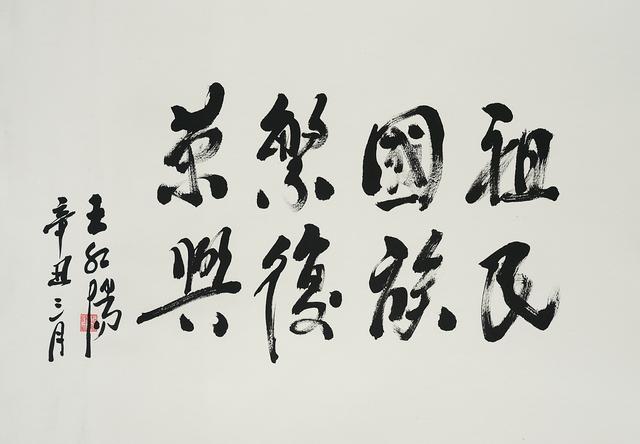 祖國繁荣
民族復興
王
辛丑三月